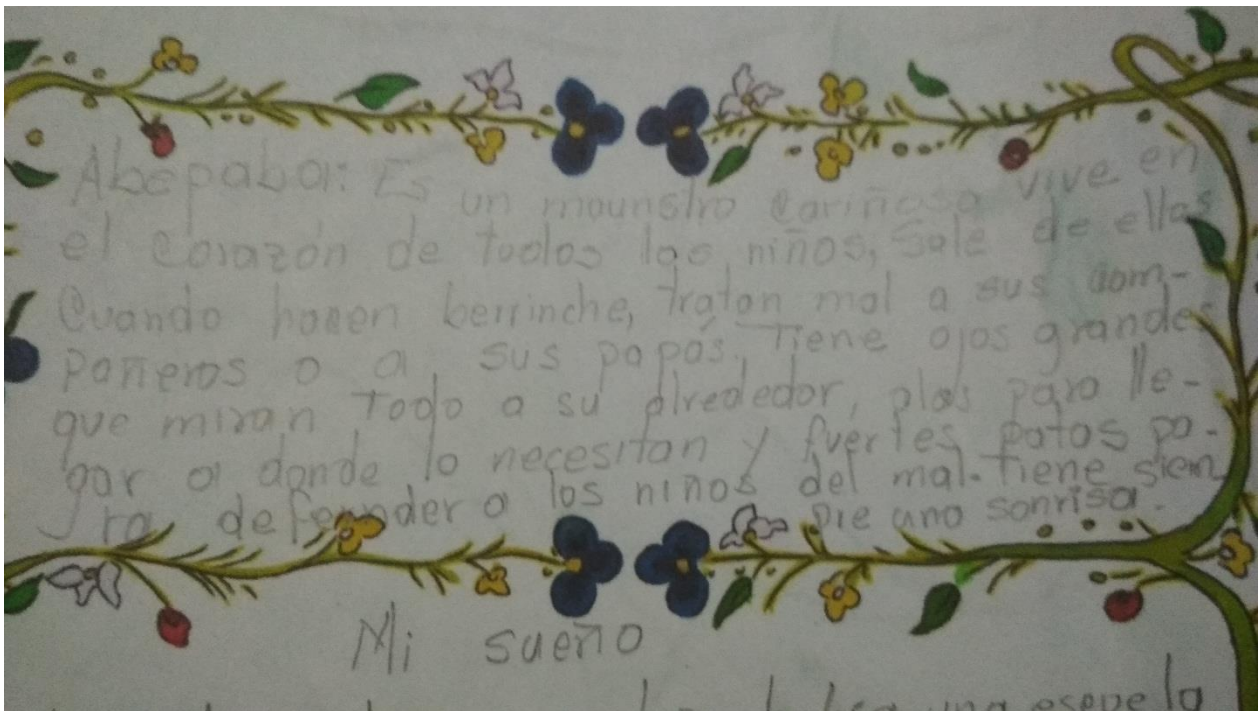 Abepaba: Es un mounstro cariñoso vive en
el corazón de todos los niños, Sale de ellos
Cuando hacen berrinche, tratan mal a sus com-
pañeros o a sus papás. Tiene ojos grandes
que miran Todo a su alrededor, alas para lle-
gar a donde lo necesitan y fuertes patas pa-
ra defender a los niños del mal. Tiene siem
pre una sonrisa.
Mi sueño
una